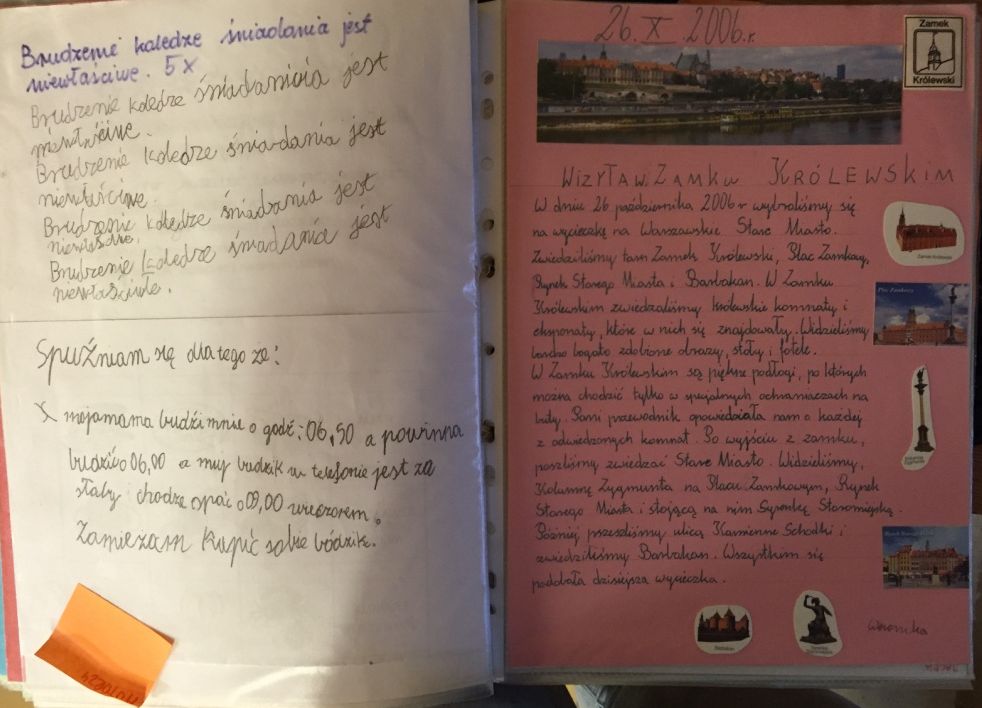 Brudzenie koledze śniadania jest
niewłaściwe. 5x
Brudzenie koledze śniadania jest
niewłściwe.
Brudzenie koledze śniadania jest
niewłaściwe.
Brudzenie koledze śniadania jest
niewłaściwe.
Brudzenie koledze śniadania jest
niewłaściwe.
Spuźniam się dlatego że:
X mojamama budzi mnie o godź: 06,50 a powinna
budzić o 06,00 a muj budzik w telefonie jest za
słaby chodzę spać o 09,00 wieczorem.
Zamieżam kupić sobie bódzik.
26. X 2006r.
Zamek
Królewski
WIZYTA W ZAMKU KRÓLEWSKIM
W dniu 26 października 2006r wybraliśmy się
na wycieczkę na Warszawskie Stare Miasto.
Zwiedziliśmy tam Zamek Królewski, Plac Zamkowy,
Rynek Starego Miasta i Barbakan. W Zamku
Królewskim zwiedzaliśmy królewskie komnaty i
eksponaty, które w nich się znajdowały. Widzieliśmy
bardzo bogato zdobione obrazy, stoły i fotele.
W Zamku Królewskim są piękne podłogi, po których
można chodzić tylko w specjalnych ochraniaczach na
buty. Pani przewodnik opowiedziała nam o każdej
z odwiedzonych komnat. Po wyjściu z zamku,
poszliśmy zwiedzać Stare Miasto. Widzieliśmy,
Kolumnę Zygmunta na Placu Zamkowym, Rynek
Starego Miasta i stojącą na nim Syrenkę Staromiejską.
Później przeszliśmy ulicą Kamienne Schodki i
zwiedziliśmy Barbakan. Wszystkim się
podobała dzisiejsza wycieczka.
Zamek Królewski
Plac Zamkowy
Kolumna
Zygmunta
Barbakan
Syrenka
Weronika